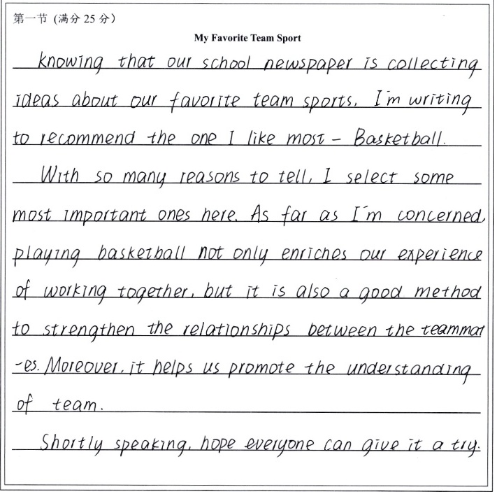 第一节 (满分 25 分)
My Favorite Team Sport
Knowing that our school newspaper is collecting
ideas about our favorite team sports, I'm writing
to recommend the one I like most - Basketball.
With so many reasons to tell, I select some
most important ones here. As far as I'm concerned,
playing basketball not only enriches our experience
of working together, but it is also a good method
to strengthen the relationships between the teammat
-es. Moreover, it helps us promote the understanding
of team.
Shortly speaking, hope everyone can give it a try.